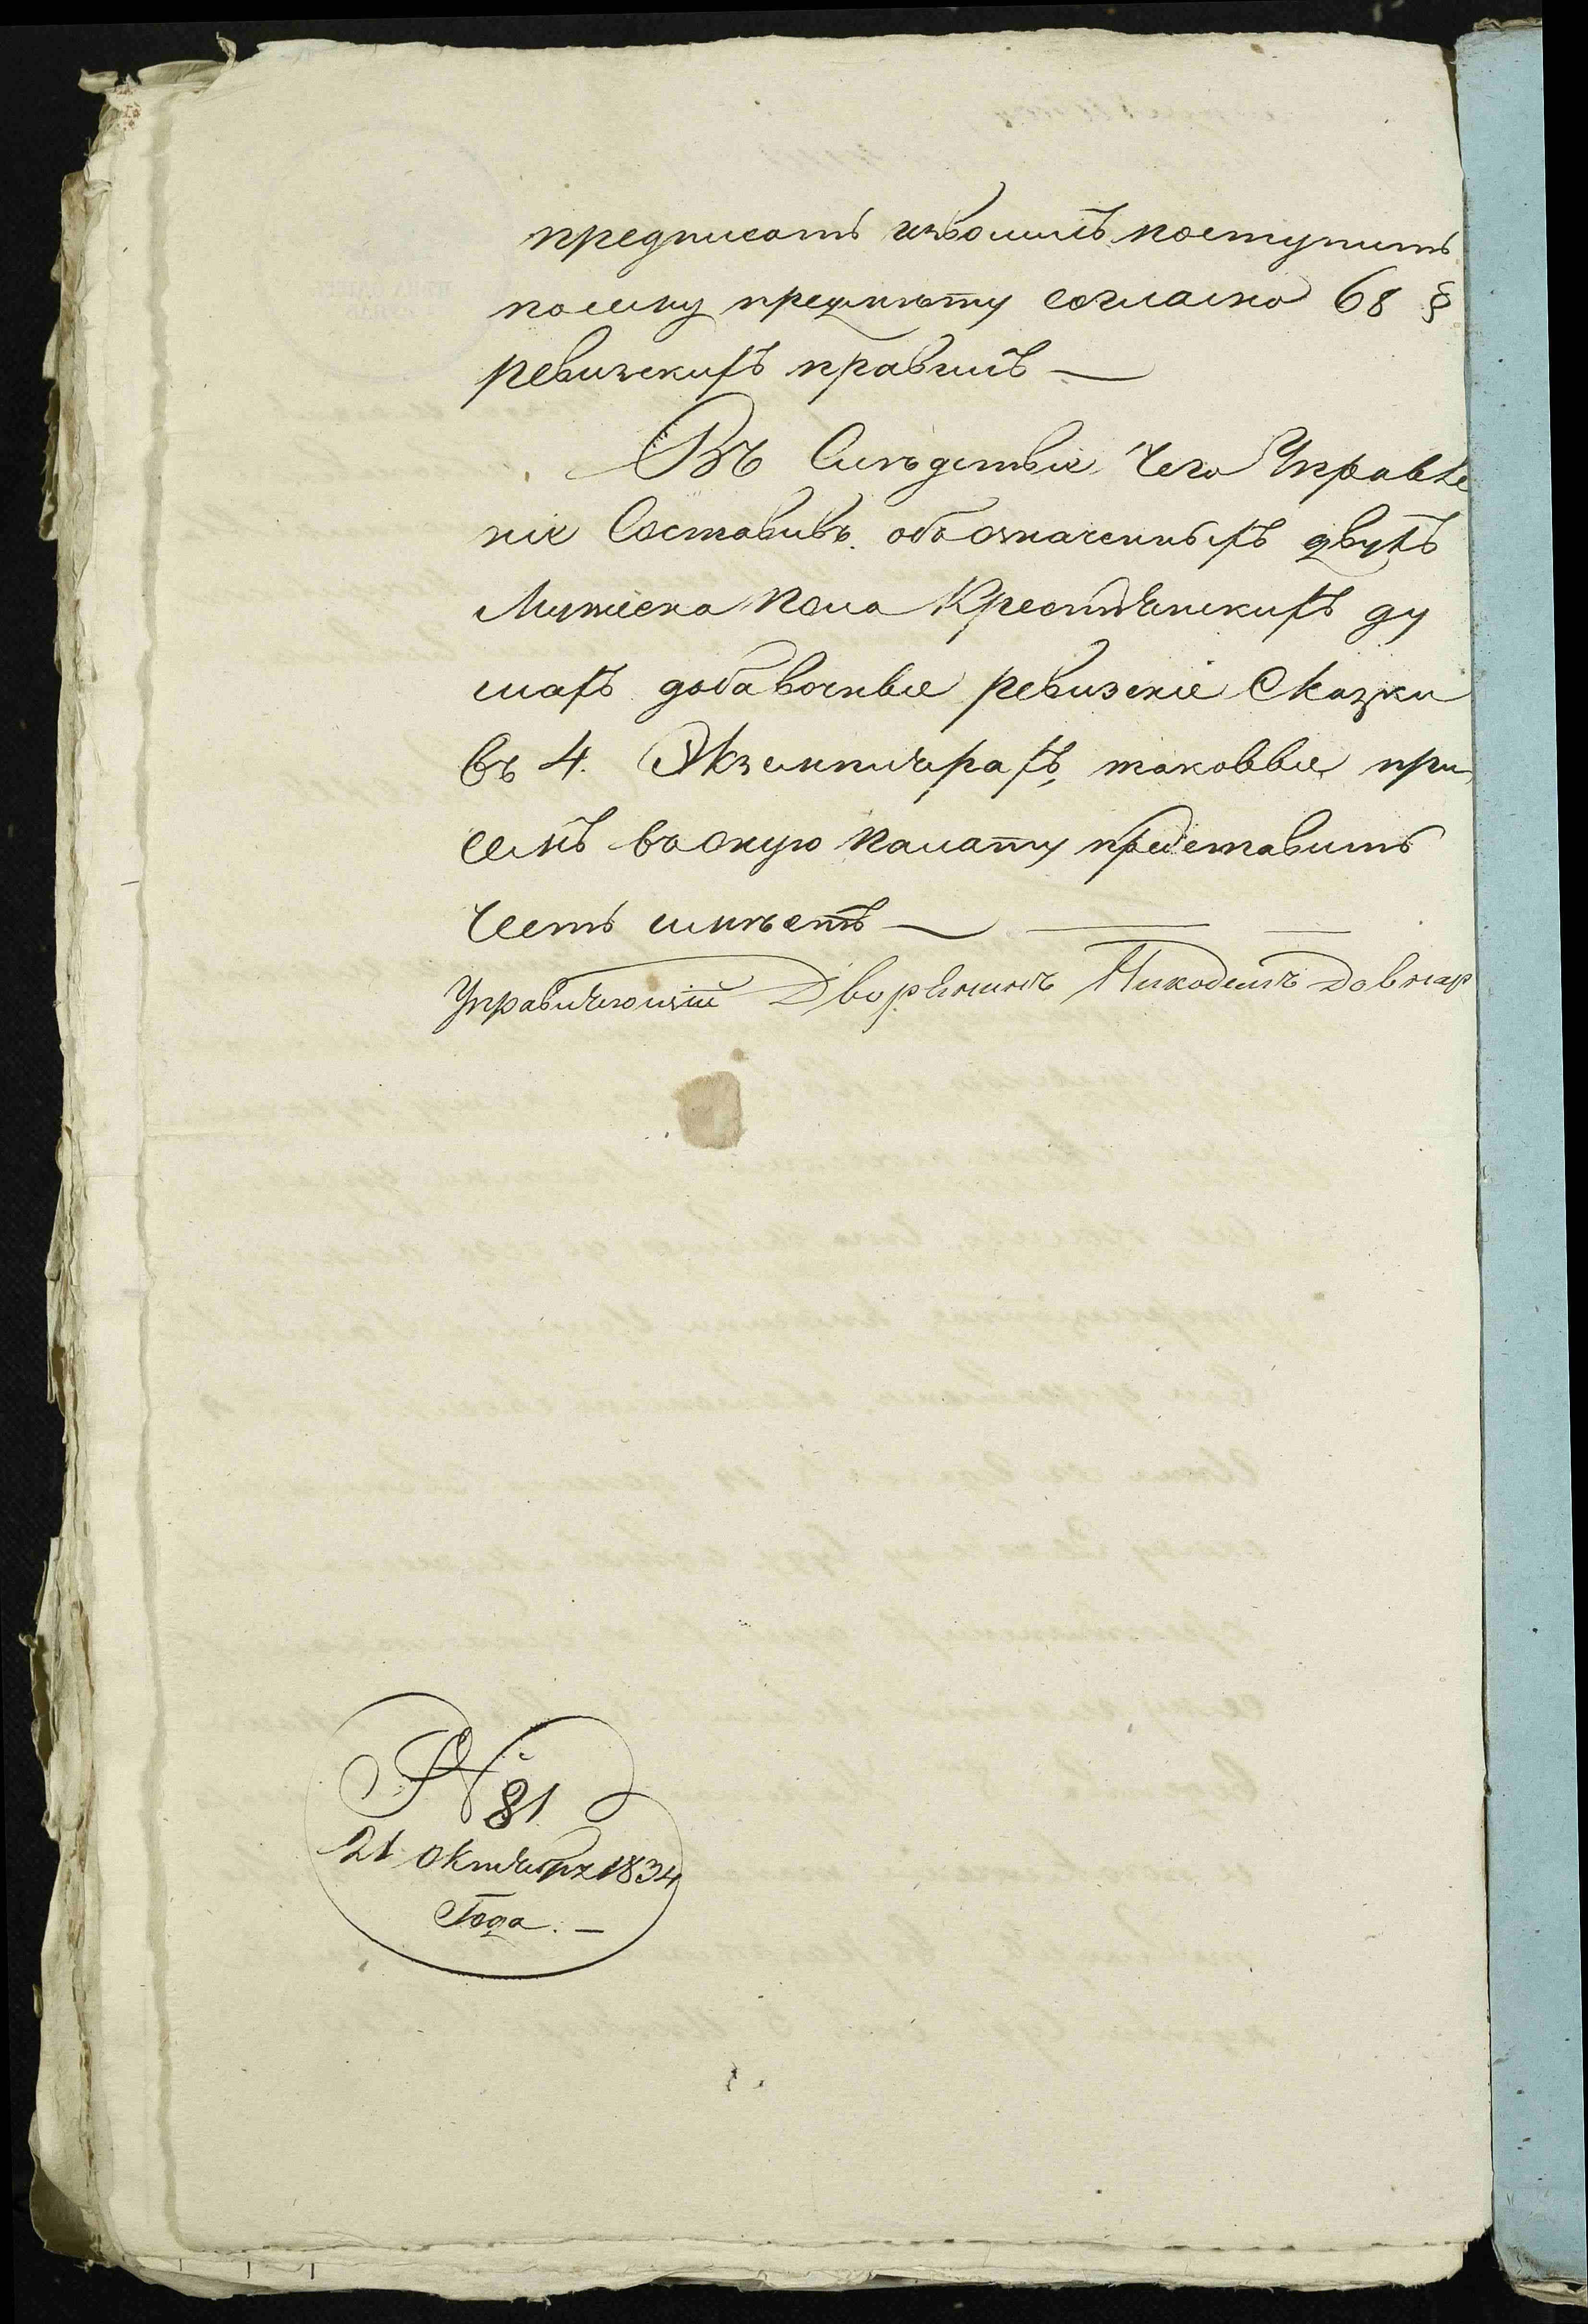 предписать изволилъ поступить
по сему предмѣту согласно 68 §
ревизскихъ правилъ —
Въ Слѣдствіе Чего Управле
ніе Составивъ обозначенныхъ двухъ
Мужеска пола Крестьянскихъ ду
шахъ добавочныя ревизскіе Сказки
въ 4. Экземплярахъ, таковые при
семъ въ оную палату представить
Честь имѣетъ —
Управляющій Дворянинъ Никодемъ Довнар
№ 81
21 Октября 1834
Года. —